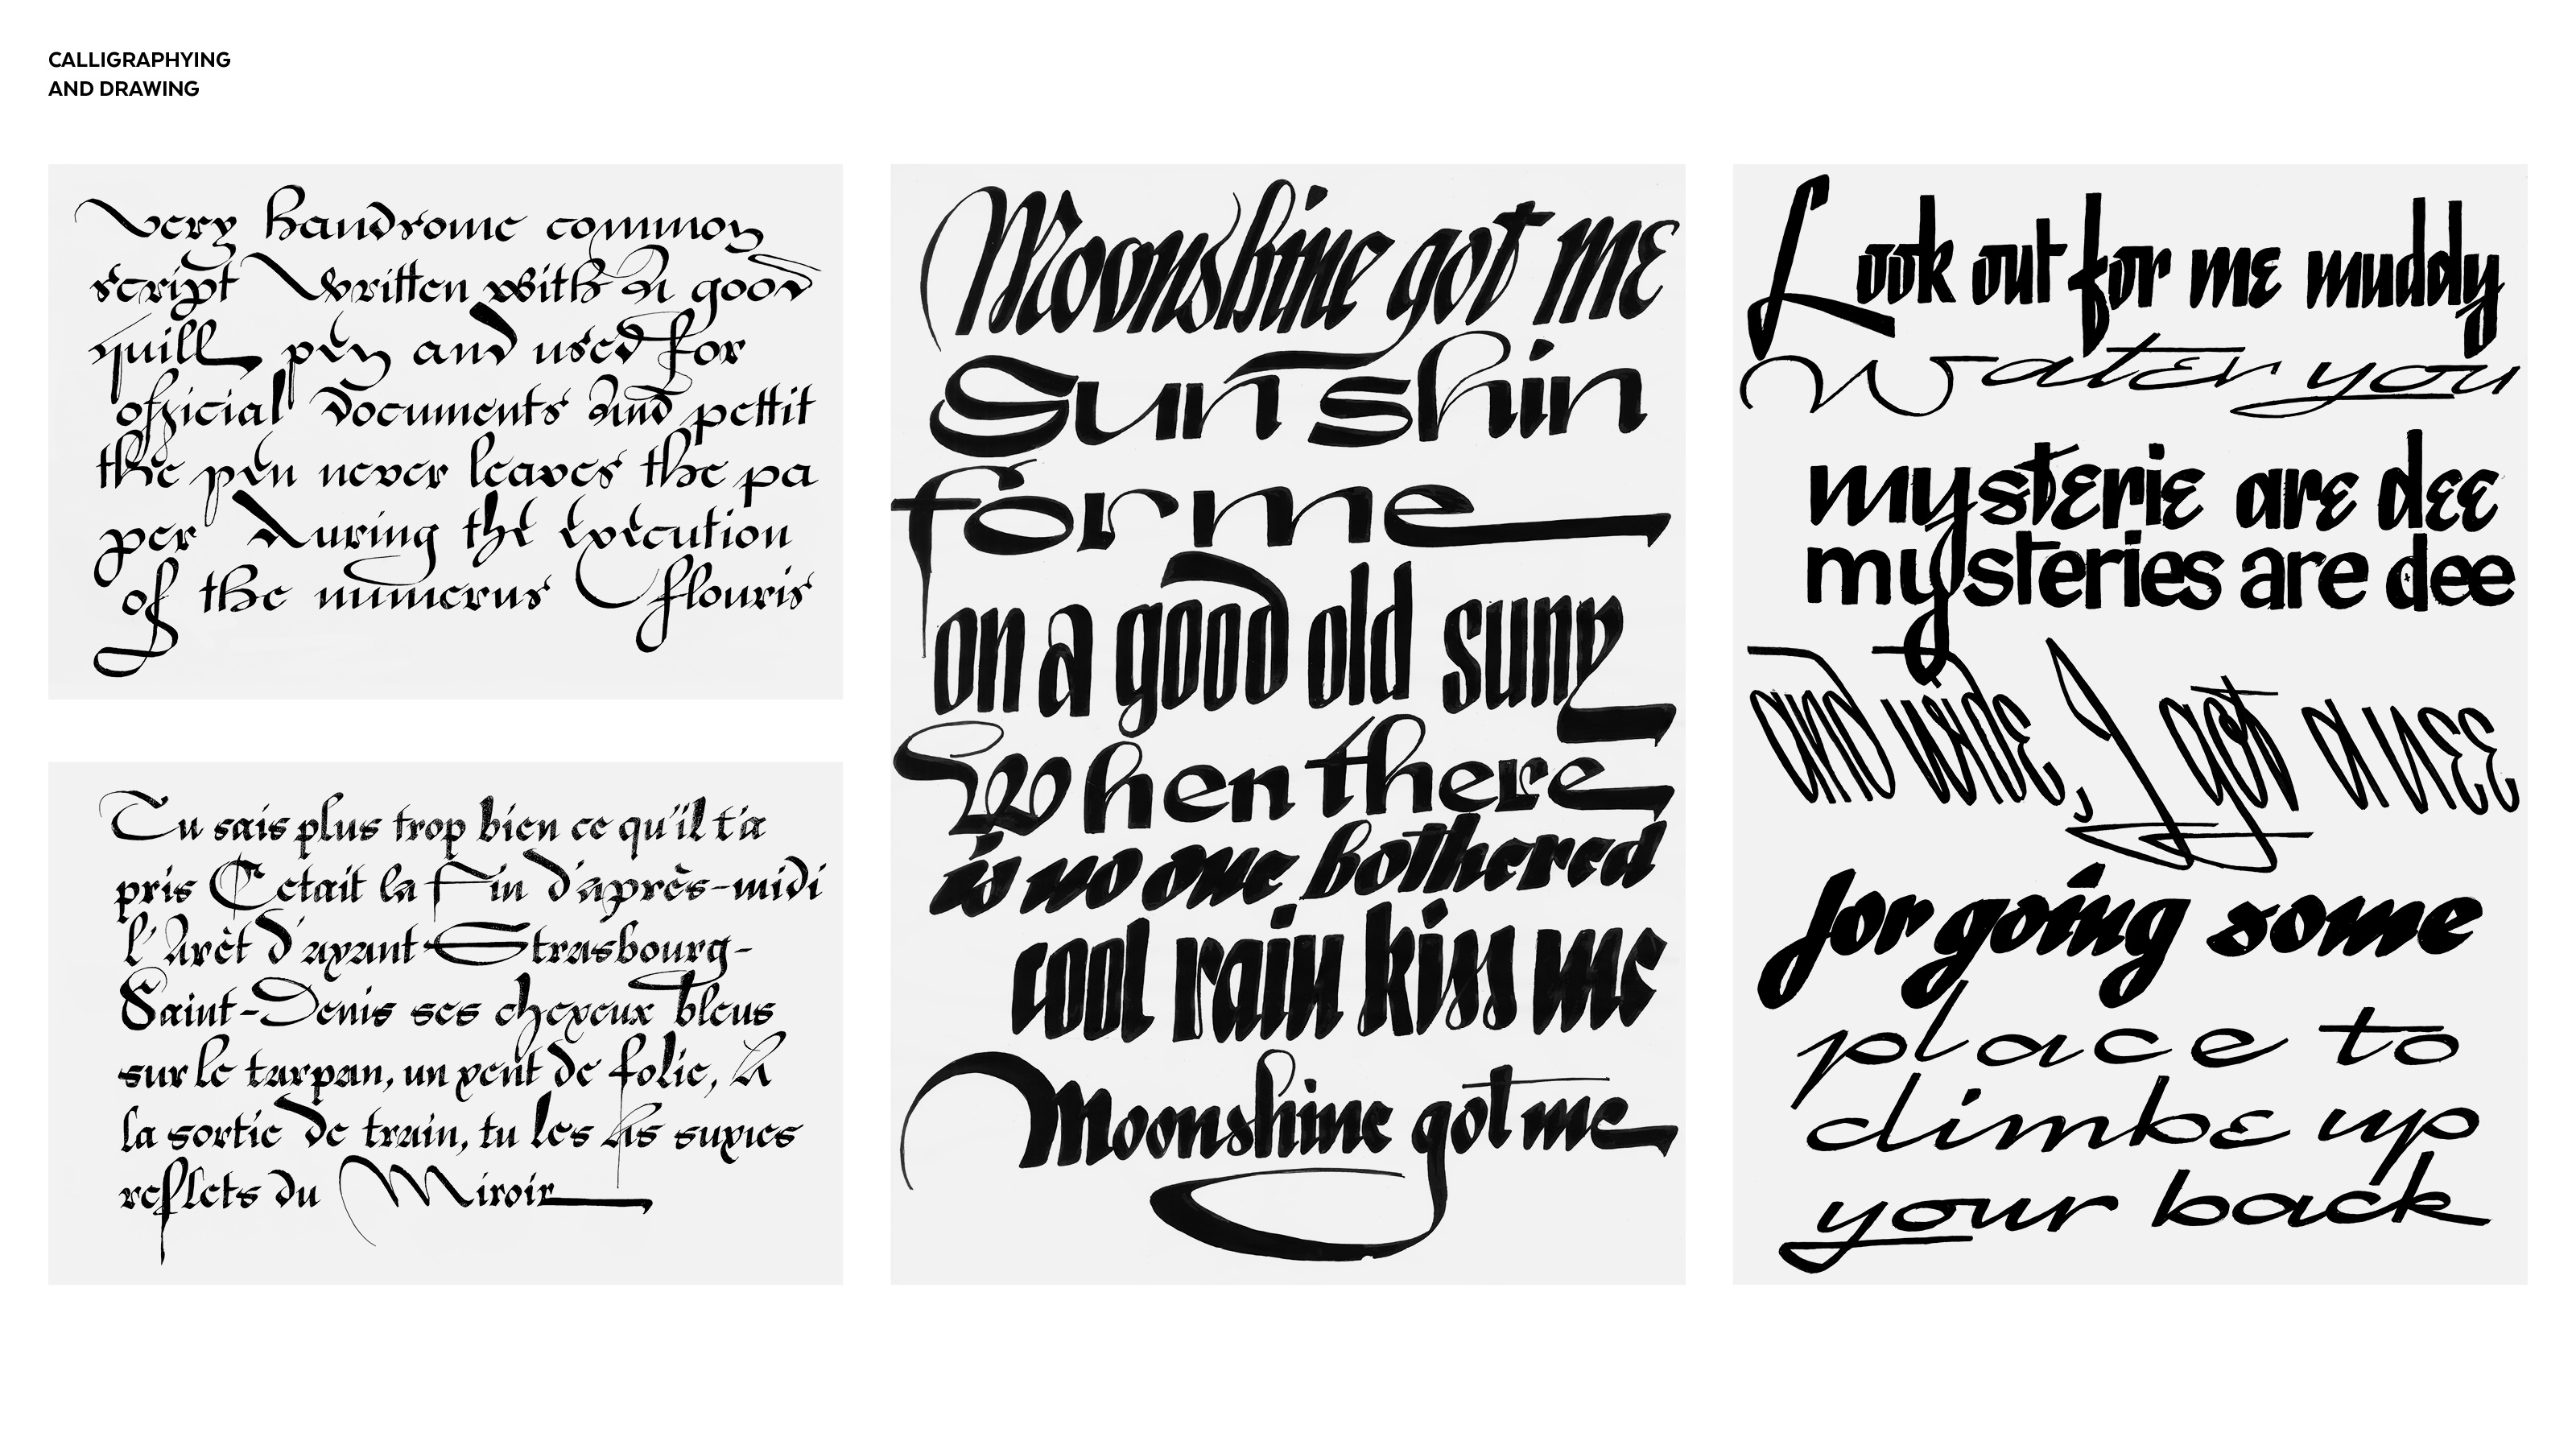 CALLIGRAPHYING
AND DRAWING
Very handsome common
script written with a good
quill pen and used for
official documents and pettit
the pen never leaves the pa
per during the execution
of the numerus flouris
Tu sais plus trop bien ce qu'il t'a
pris C'etait la Fin d'après-midi
l'Arêt d'avant Strasbourg-
Saint-Denis ses cheveux bleus
sur le tarpan, un vent de folie, A
la sortie de train, tu les as suvies
reflets du Miroir
Moonshine got me
Sun shin
for me
on a good old suny
When there
is no one bothered
cool rain kiss me
Moonshine got me
Look out for me muddy
Water you
mysterie are dee
mysteries are dee
and wide, I got a nee
for going some
place to
climbe up
your back